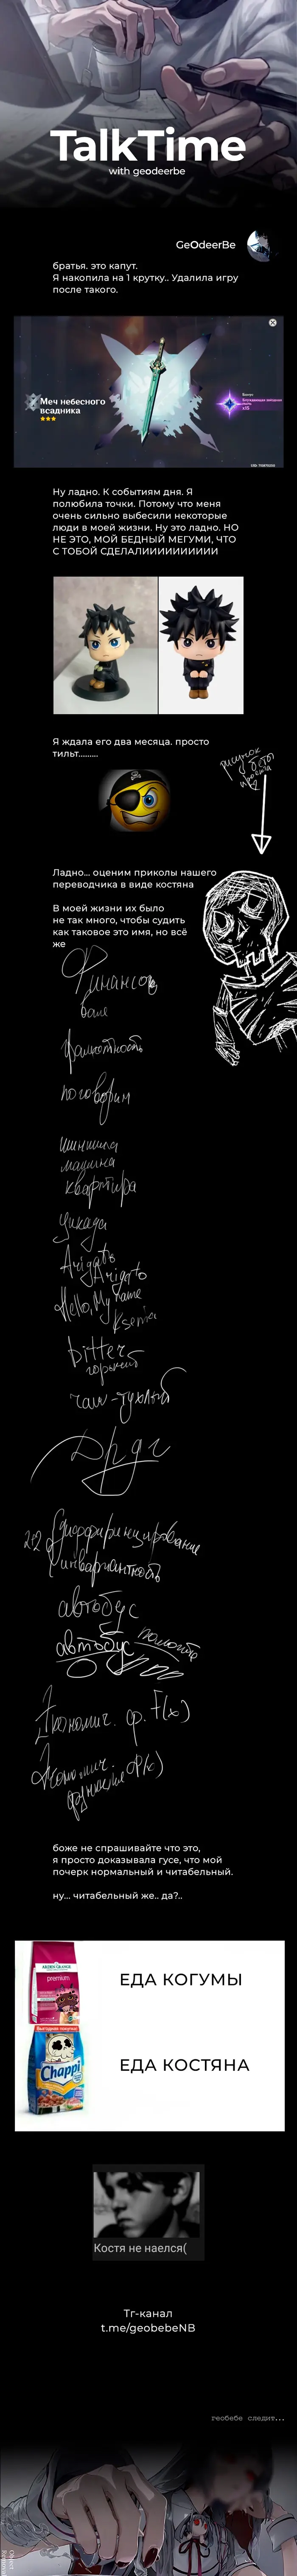 TalkTime
with geodeerbe
GeOdeerBe
братья. это капут.
Я накопила на 1 крутку.. Удалила игру
после такого.
Меч небесного
всадника
x15
Ну ладно. К событиям дня. Я
полюбила точки. Потому что меня
очень сильно выбесили некоторые
люди в моей жизни. Ну это ладно. НО
НЕ ЭТО, МОЙ БЕДНЫЙ МЕГУМИ, ЧТО
С ТОБОЙ СДЕЛАЛИИИИИИИИИИ
Я ждала его два месяца. просто
тильт.........
рисунок
Ладно... оценим приколы нашего
переводчика в виде костяна
В моей жизни их было
не так много, чтобы судить
как таковое это имя, но всё
же
Финансов
грамотность
поговорим
машина
квартира
цикада
Arigato
Arigato
Hello, My name
Ksenia
bitter
горький
чай-тухлый
Друг
2:2
инвариантность
автобус
автобус
Экономич. ф. F(x)
боже не спрашивайте что это,
я просто доказывала гусе, что мой
почерк нормальный и читабельный.
ну... читабельный же.. да?..
ARDEN GRANGE
premium
Chappi
ЕДА КОГУМЫ
ЕДА КОСТЯНА
Костя не наелся(
Тг-канал
t.me/geobebeNB
геобебе следит...